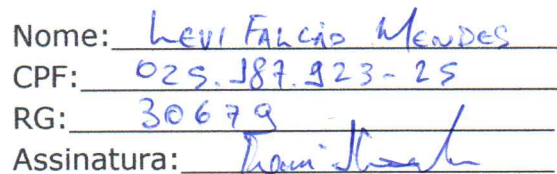 Nome: Levi Falcão Mendes
CPF: 025.187.923-25
RG: 30679
Assinatura: